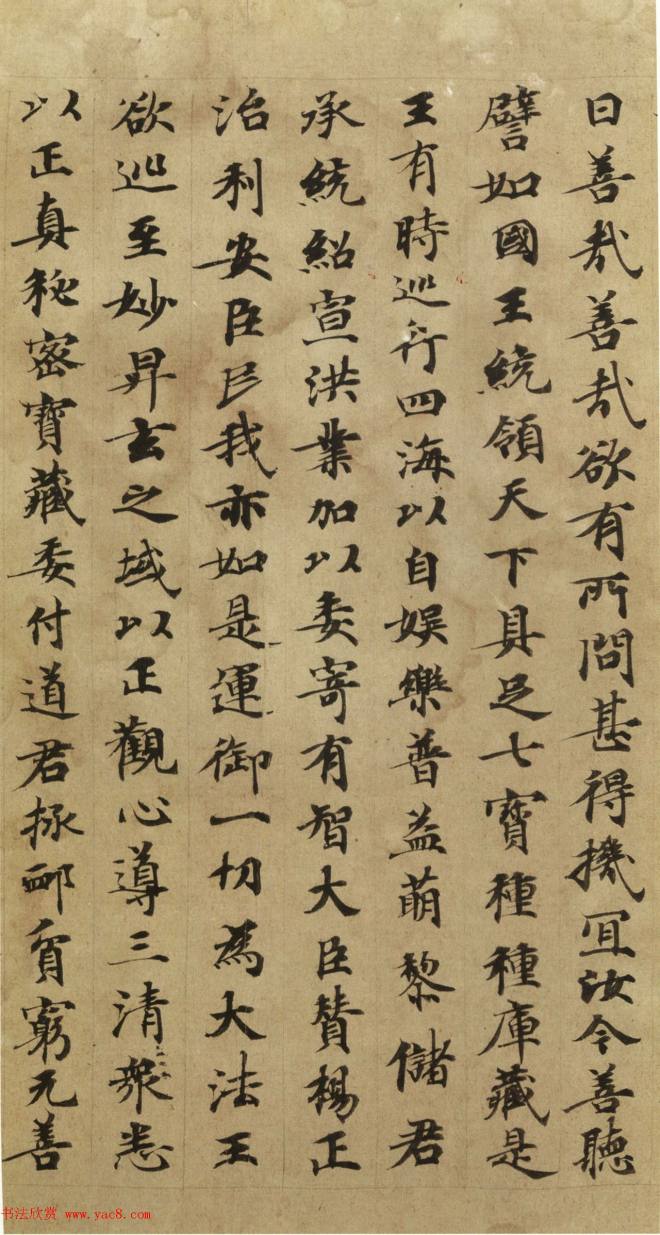 曰善哉善哉欲有所問甚得機宜汝今善聽
譬如國王統領天下具足七寶種種庫藏是
王有時巡行四海以自娛樂普益萌黎儲君
承統紹宣洪業加以委寄有智大臣贊楊正
治利安臣民我亦如是運御一切為大法王
欲巡至妙昇玄之域以正觀心導三清眾悉
以正真秘密寶藏委付道君拯卹貧窮无善
书法欣赏 www.yac8.com